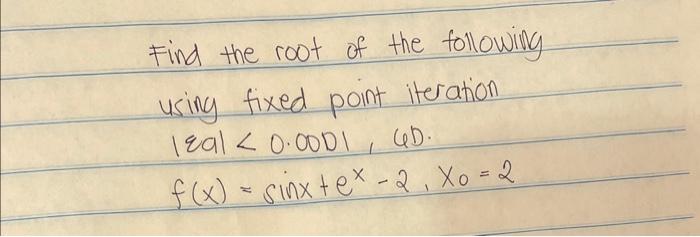 Find the root of the following
using fixed point iteration
|εa| < 0.0001, 6D.
f(x) = sinx+e^x - 2, X₀ = 2